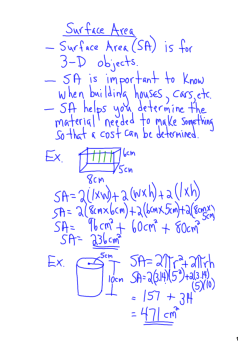 Surface Area
- Surface Area (SA) is for
3-D objects.
- SA is important to know
when building houses, cars, etc.
- SA helps you determine the
material needed to make something
so that a cost can be determined.
Ex.
6cm
5cm
8cm
SA = 2(lxw) + 2(wxh) + 2(lxh)
SA = 2(8cmx6cm) + 2(6cmx5cm) + 2(8cmx5cm)
SA = 96cm² + 60cm² + 80cm²
SA = 236cm²
Ex.
5cm
10cm
SA = 2πr² + 2πrh
SA = 2(3.14)(5²) + 2(3.14)(5)(10)
= 157 + 314
= 471 cm²
1